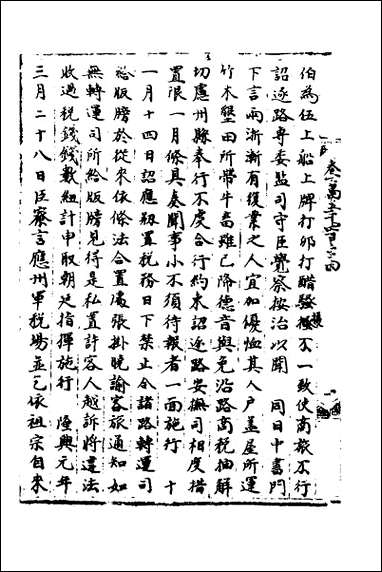 伯為伍上船上牌打卯打醋發極不一致使商旅不行
詔逐路專委監司守臣覺察按治以聞　同日中書門
下言兩浙漸有復業之人宜加優恤其人户蓋屋所運
竹木墾田所帶牛畜雖已降德音與免沿路商稅抽解
切慮州縣奉行不虔合行約束詔逐路安撫司相度措
置限一月條具奏聞事小不須待報者一面施行　十
一月十四日詔應㧞置税務日下禁止令諸路轉運司
給版牓於從來依條法合置處張掛曉諭客旅通知如
無轉運司所給版牓見得是私置許客人越訴將違法
收過税錢錢數紐計申取朝廷指揮施行　隆興元年
三月二十八日臣寮言應州軍税場並已依祖宗自來